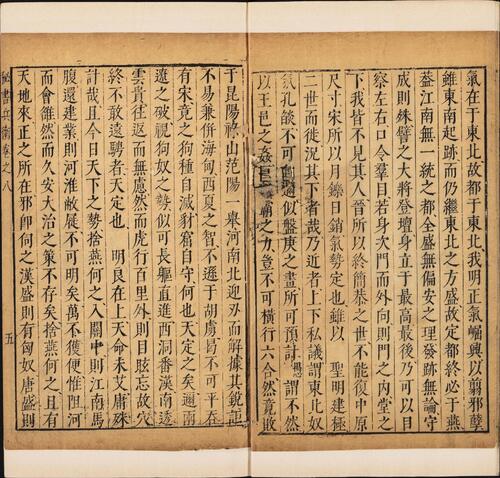 氣在于東北故都于東北我明正氣崛興以剪邪孽
雖東南起跡而仍繼東北之方盛故定都終必于燕
葢江南無一統之都全盛無偏安之理發跡無論守
成則殊譬之大將登壇身立于最高最後乃可以目
察左右口令羣目若身次門而外向則門之內堂之
下我皆不見其人晉所以終簡恭之世不能復中原
尺寸宋所以月鑠日銷氣勢定也雖以　聖明建極
二世而徙況其下者哉乃近者上下私議謂東北奴
氛孔燄不可遷似盤庚之畫所可預計謂不然
以王邑之姦之力豈不可橫行六合然竟敗
于昆陽祿山范陽一舉河南北迎刃而解據其銳詎
不易兼併海甸西夏之智不遜于胡虜曷不可平吞
有宋竟之狗種自滅豺窟自守何也天定之矣邇南
遼之破覘狗奴之勢似可長驅直進西洞番漢南透
雲貴往返而無慮然而虎行百里外則目眩忘故穴
終不敢遠騁者天定也　明艮在上天命未艾庸殊
計哉且今日天下之勢捨燕何之入關中則江南馬
腹還建業則河淮敝屣不可明矣萬不獲便惟阻河
而會雒然而久安大治之策不存矣捨燕何之且有
天地來正之所在邪卽伺之漢盛則有匈奴唐盛則
秘書兵衡卷之八
五